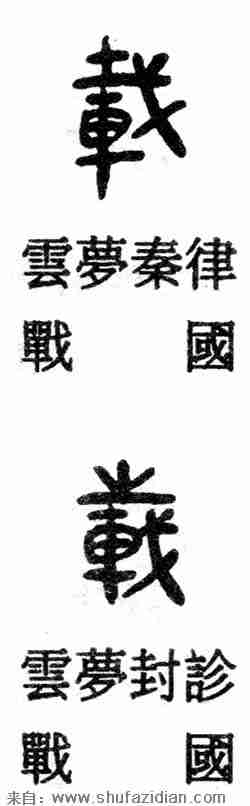 載
雲夢秦律
戰國
載
雲夢封診
戰國
来自: www.shufazidian.com